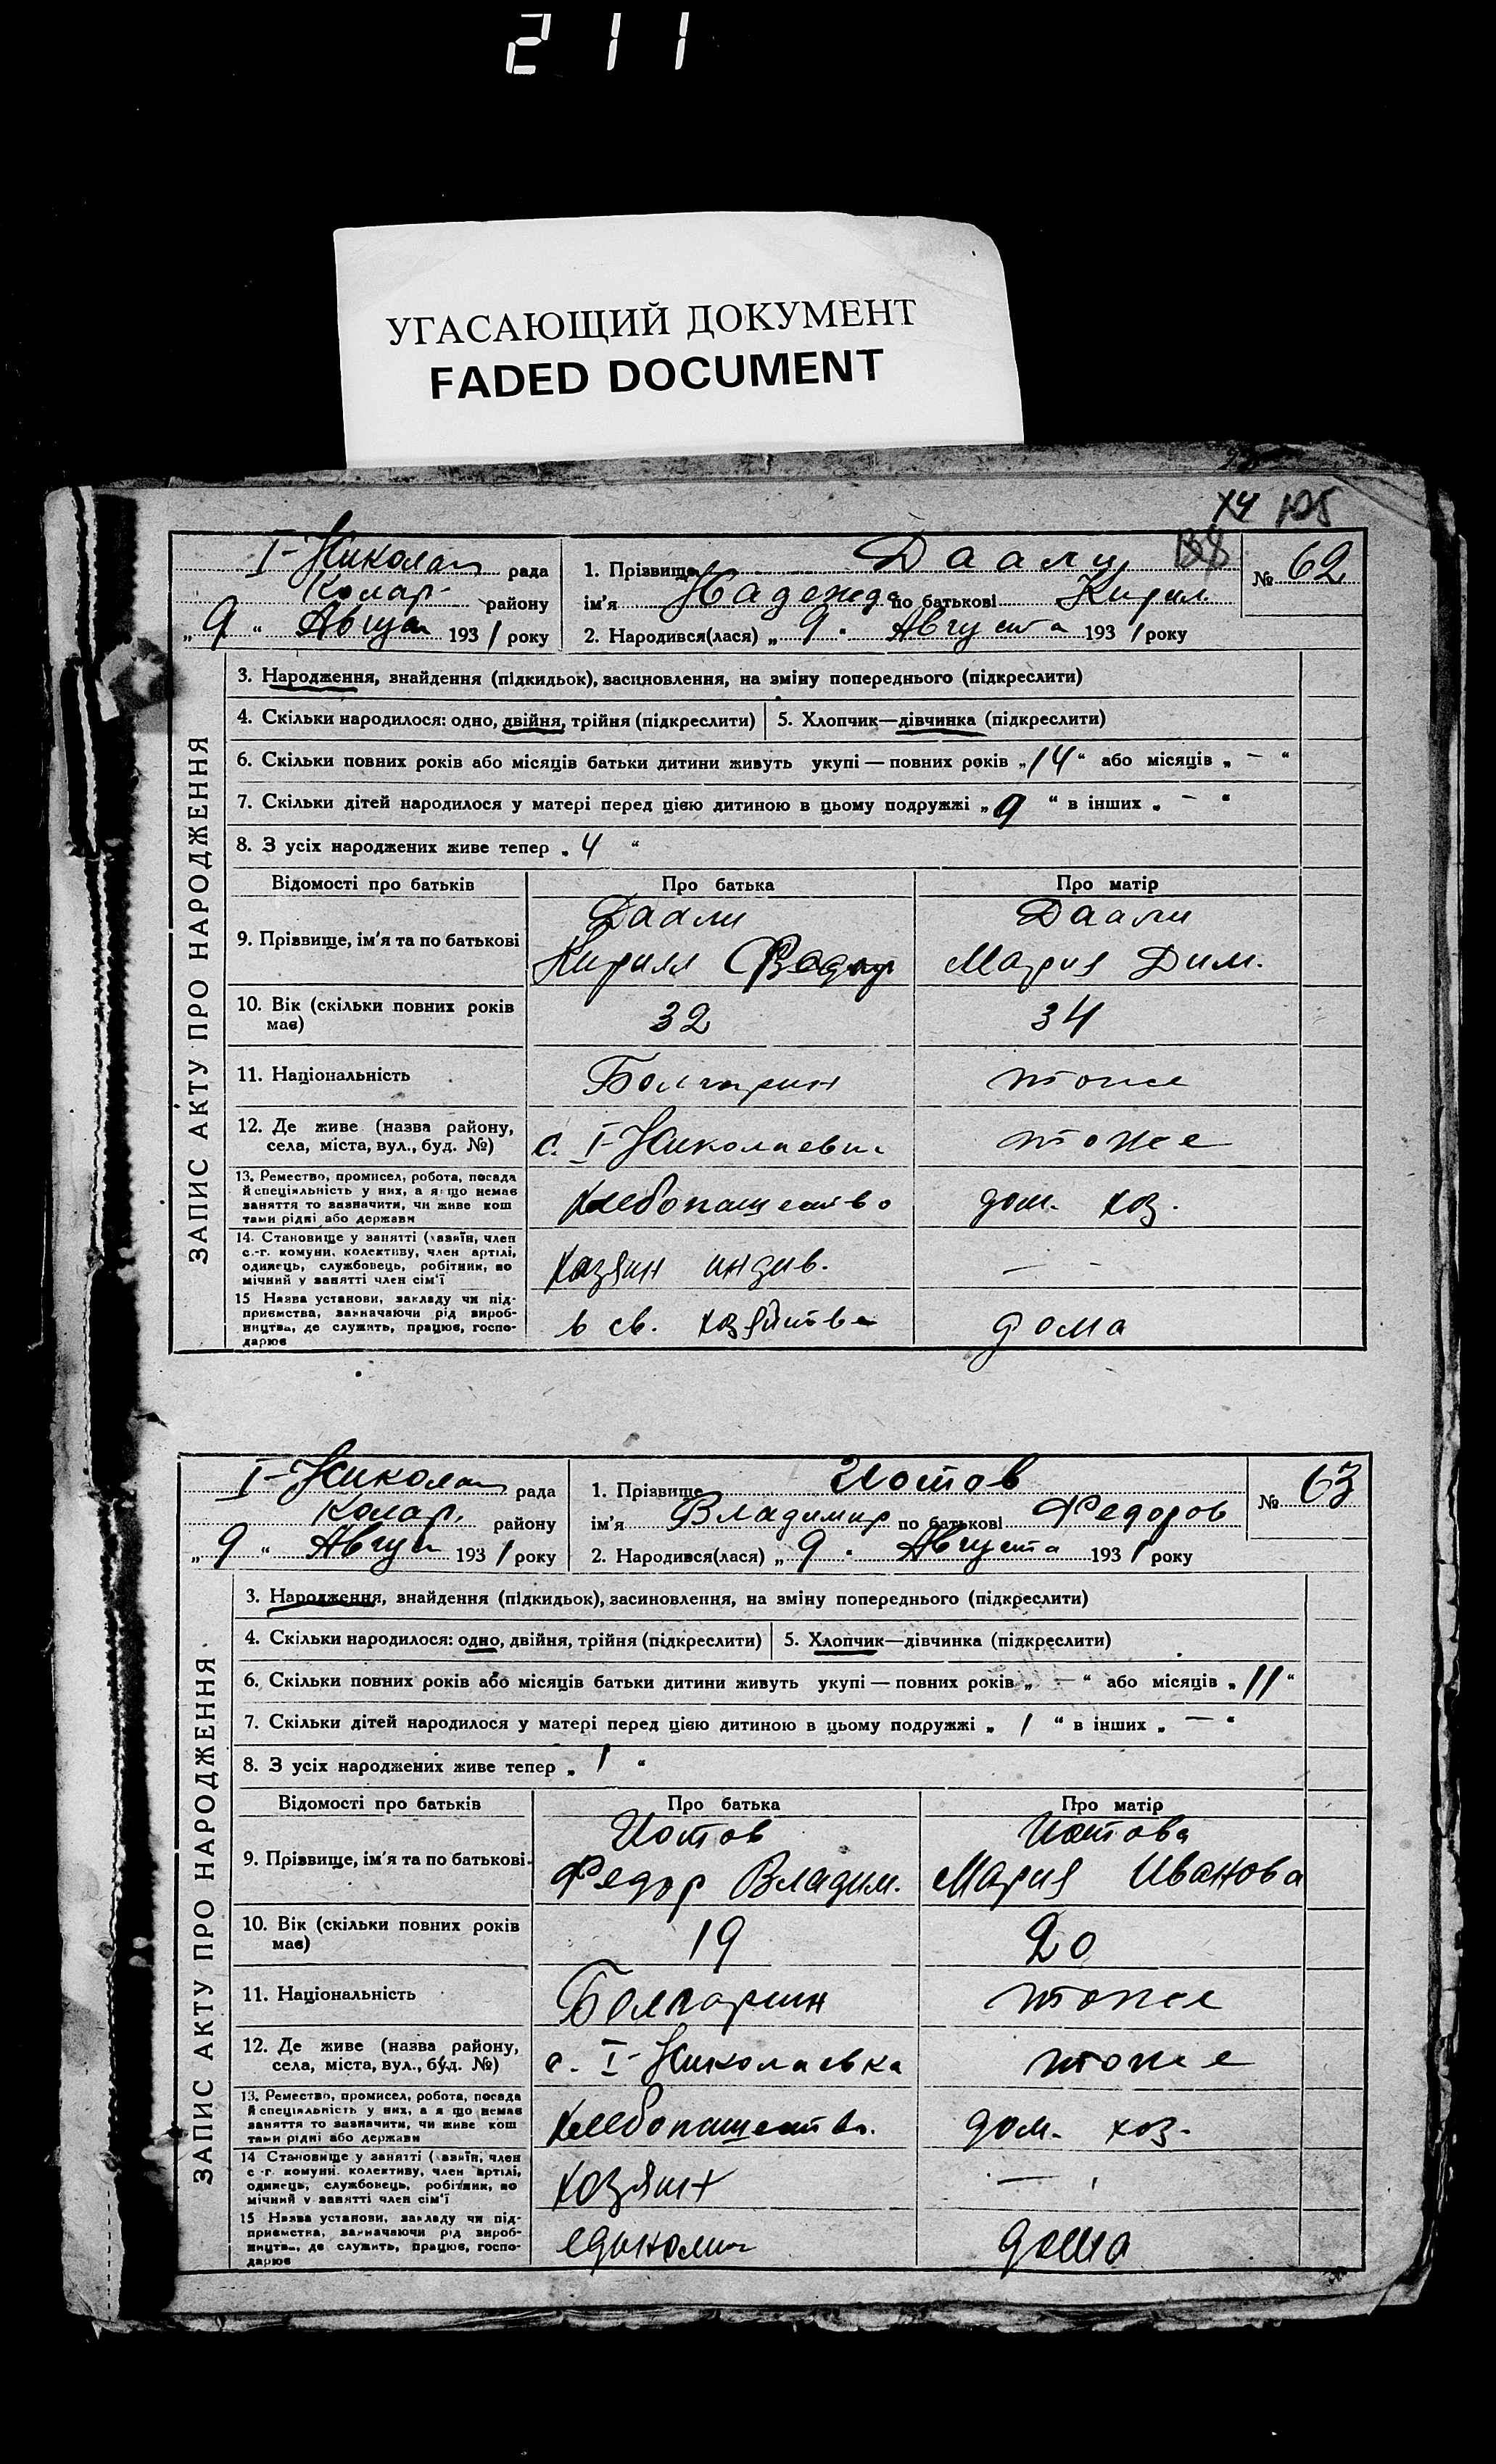 211
УГАСАЮЩИЙ ДОКУМЕНТ
FADED DOCUMENT
74 105
I-Николаев рада
Колар. району
„9“ Август 1931 року
1. Прізвище Даали
ім'я Надежда по батькові Кирил.
2. Народився(лася) „9“ Августа 1931 року
№ 62
ЗАПИС АКТУ ПРО НАРОДЖЕННЯ
3. Народження, знайдення (підкидьок), засиновлення, на зміну попереднього (підкреслити)
4. Скільки народилося: одно, двійня, трійня (підкреслити) 5. Хлопчик—дівчинка (підкреслити)
6. Скільки повних років або місяців батьки дитини живуть укупі — повних років „14“ або місяців „—“
7. Скільки дітей народилося у матері перед цією дитиною в цьому подружжі „9“ в інших „—“
8. З усіх народжених живе тепер „4“
Відомості про батьків Про батька Про матір
9. Прізвище, ім'я та по батькові
Даали
Кирилл
Даали
Мария Дим.
10. Вік (скільки повних років має) 32 34
11. Національність Болгарин тоже
12. Де живе (назва району,
села, міста, вул., буд. №)
с. I-Николаевка тоже
13. Ремество, промисел, робота, посада
й спеціяльність у них, а якщо немає
заняття то зазначити, чи живе кош
тами рідні або держави
хлебопашество дом. хоз.
14. Становище у занятті (хазяїн, член
с.-г. комуни, колективу, член артілі,
одинець, службовець, робітник, по
мічний у занятті член сім'ї
хазяин индив. —
15 Назва установи, закладу чи під-
приємства, зазначаючи рід вироб-
ництва, де служить, працює, госпо-
дарює
в св. хозяйстве дома
I-Николаев рада
Колар. району
„9“ Август 1931 року
1. Прізвище Иотов
ім'я Владимир по батькові Федоров
2. Народився(лася) „9“ Августа 1931 року
№ 63
ЗАПИС АКТУ ПРО НАРОДЖЕННЯ
3. Народження, знайдення (підкидьок), засиновлення, на зміну попереднього (підкреслити)
4. Скільки народилося: одно, двійня, трійня (підкреслити) 5. Хлопчик—дівчинка (підкреслити)
6. Скільки повних років або місяців батьки дитини живуть укупі — повних років „—“ або місяців „11“
7. Скільки дітей народилося у матері перед цією дитиною в цьому подружжі „1“ в інших „—“
8. З усіх народжених живе тепер „1“
Відомості про батьків Про батька Про матір
9. Прізвище, ім'я та по батькові
Иотов
Федор Владим.
Иотова
Мария Иванова
10. Вік (скільки повних років має) 19 20
11. Національність Болгарин тоже
12. Де живе (назва району,
села, міста, вул., буд. №)
с. I-Николаевка тоже
13. Ремество, промисел, робота, посада
й спеціяльність у них, а якщо немає
заняття то зазначити, чи живе кош
тами рідні або держави
хлебопашество. дом. хоз.
14 Становище у занятті (хазяїн, член
с.-г. комуни, колективу, член артілі,
одинець, службовець, робітник, по
мічний у занятті член сім'ї
хозяин —
15 Назва установи, закладу чи під-
приємства, зазначаючи рід вироб-
ництва, де служить, працює, госпо-
дарює
единолич дома